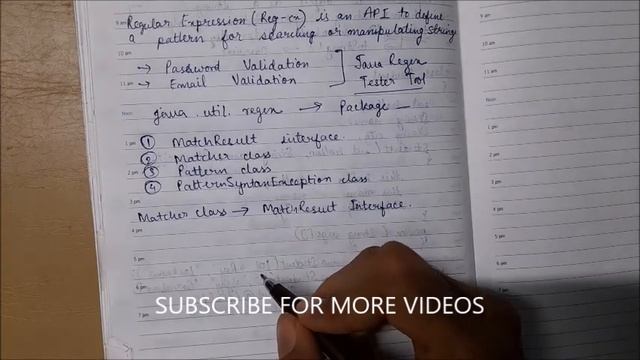 Regular Expression (Reg-ex) is an API to define
a pattern for searching or manipulating string
→ Password Validation
→ Email Validation
Java Regex
Tester Tool
java.util.regex → Package
1 MatchResult interface.
2 Matcher class
3 Pattern class
4 PatternSyntaxException class
Matcher class → MatchResult Interface.
SUBSCRIBE FOR MORE VIDEOS
9 am
10 am
11 am
Noon
1 pm
2 pm
3 pm
4 pm
5 pm
6 pm
7 pm